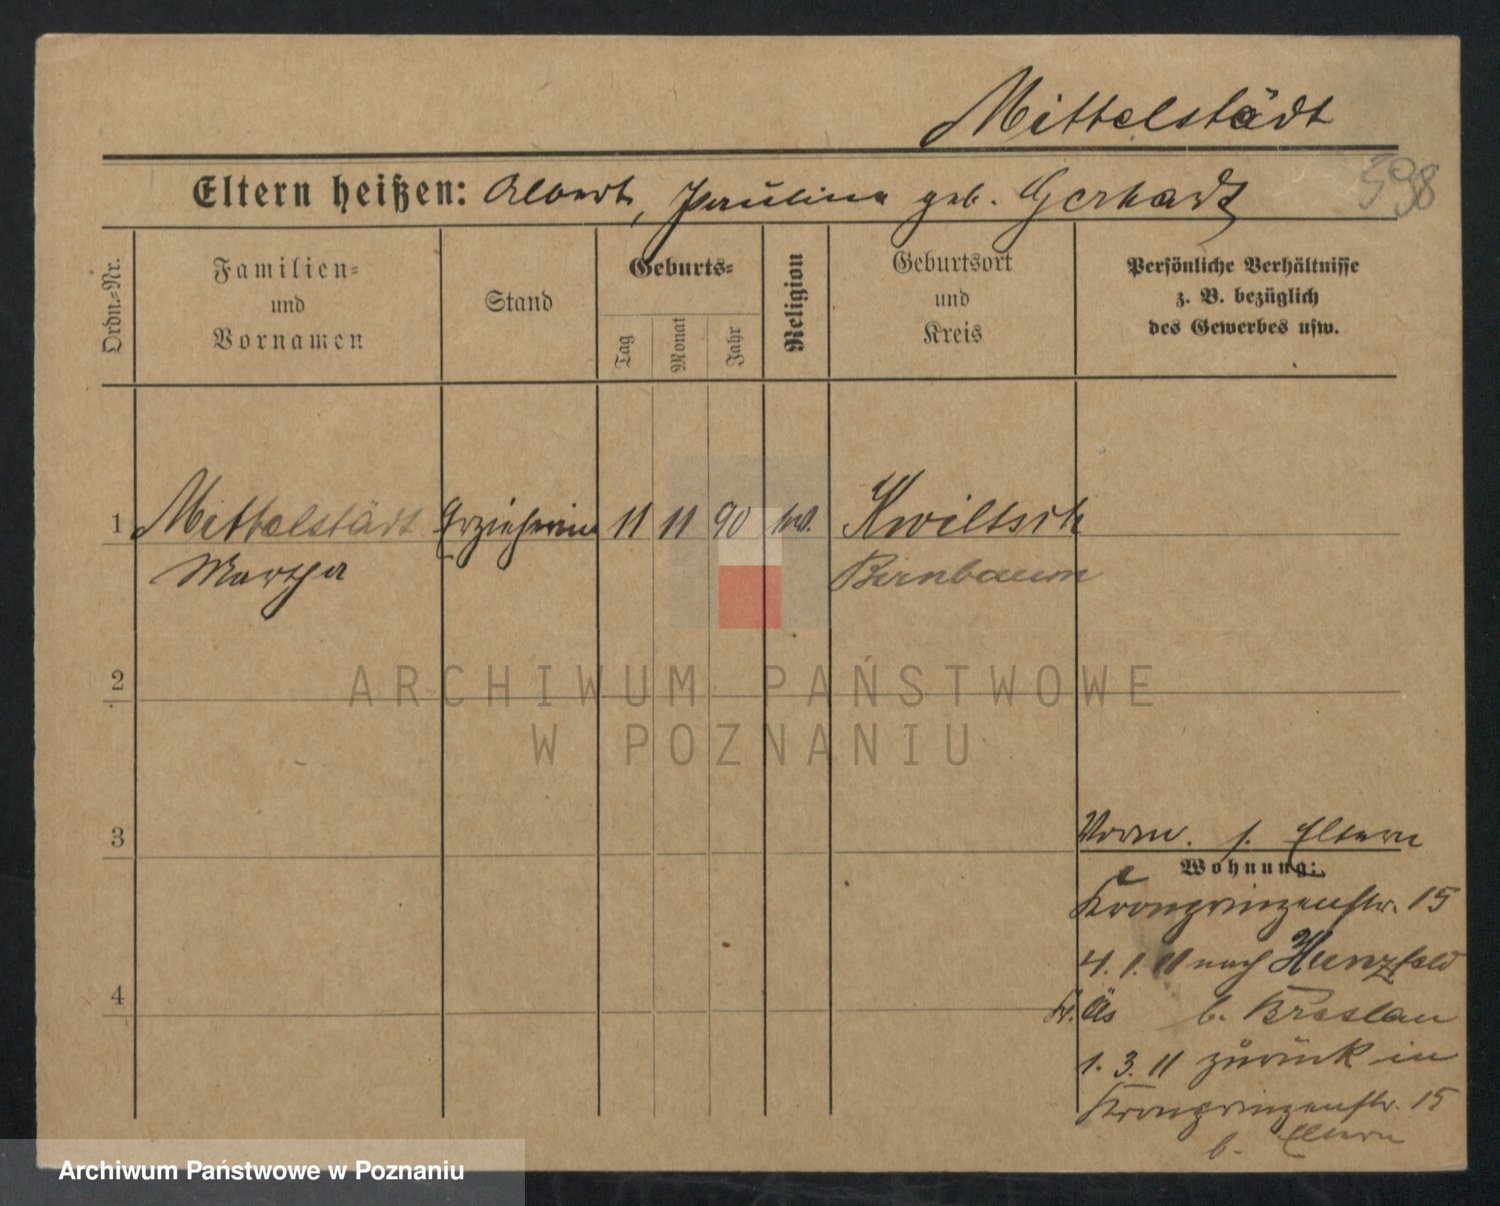 Mittelstädt
598
Eltern heißen: Albert, Paulina geb. Gerhardt
Ordn.-Nr.
Familien-
und
Vornamen
Stand
Geburts-
Tag
Monat
Jahr
Religion
Geburtsort
und
Kreis
Persönliche Verhältnisse
z. B. bezüglich
des Gewerbes usw.
1 Mittelstädt Erzieherin 11 11 90 ev. Kwiltsch
Martha Birnbaum
2
ARCHIWUM PAŃSTWOWE
W POZNANIU
3
Vorm. s. Eltern
Wohnung:
Kronprinzenstr. 15
4. 1. 11 nach Hunzfeld
4
Kr. Öls b. Breslau
1. 3. 11 zurück in
Kronprinzenstr. 15
b. Eltern
Archiwum Państwowe w Poznaniu